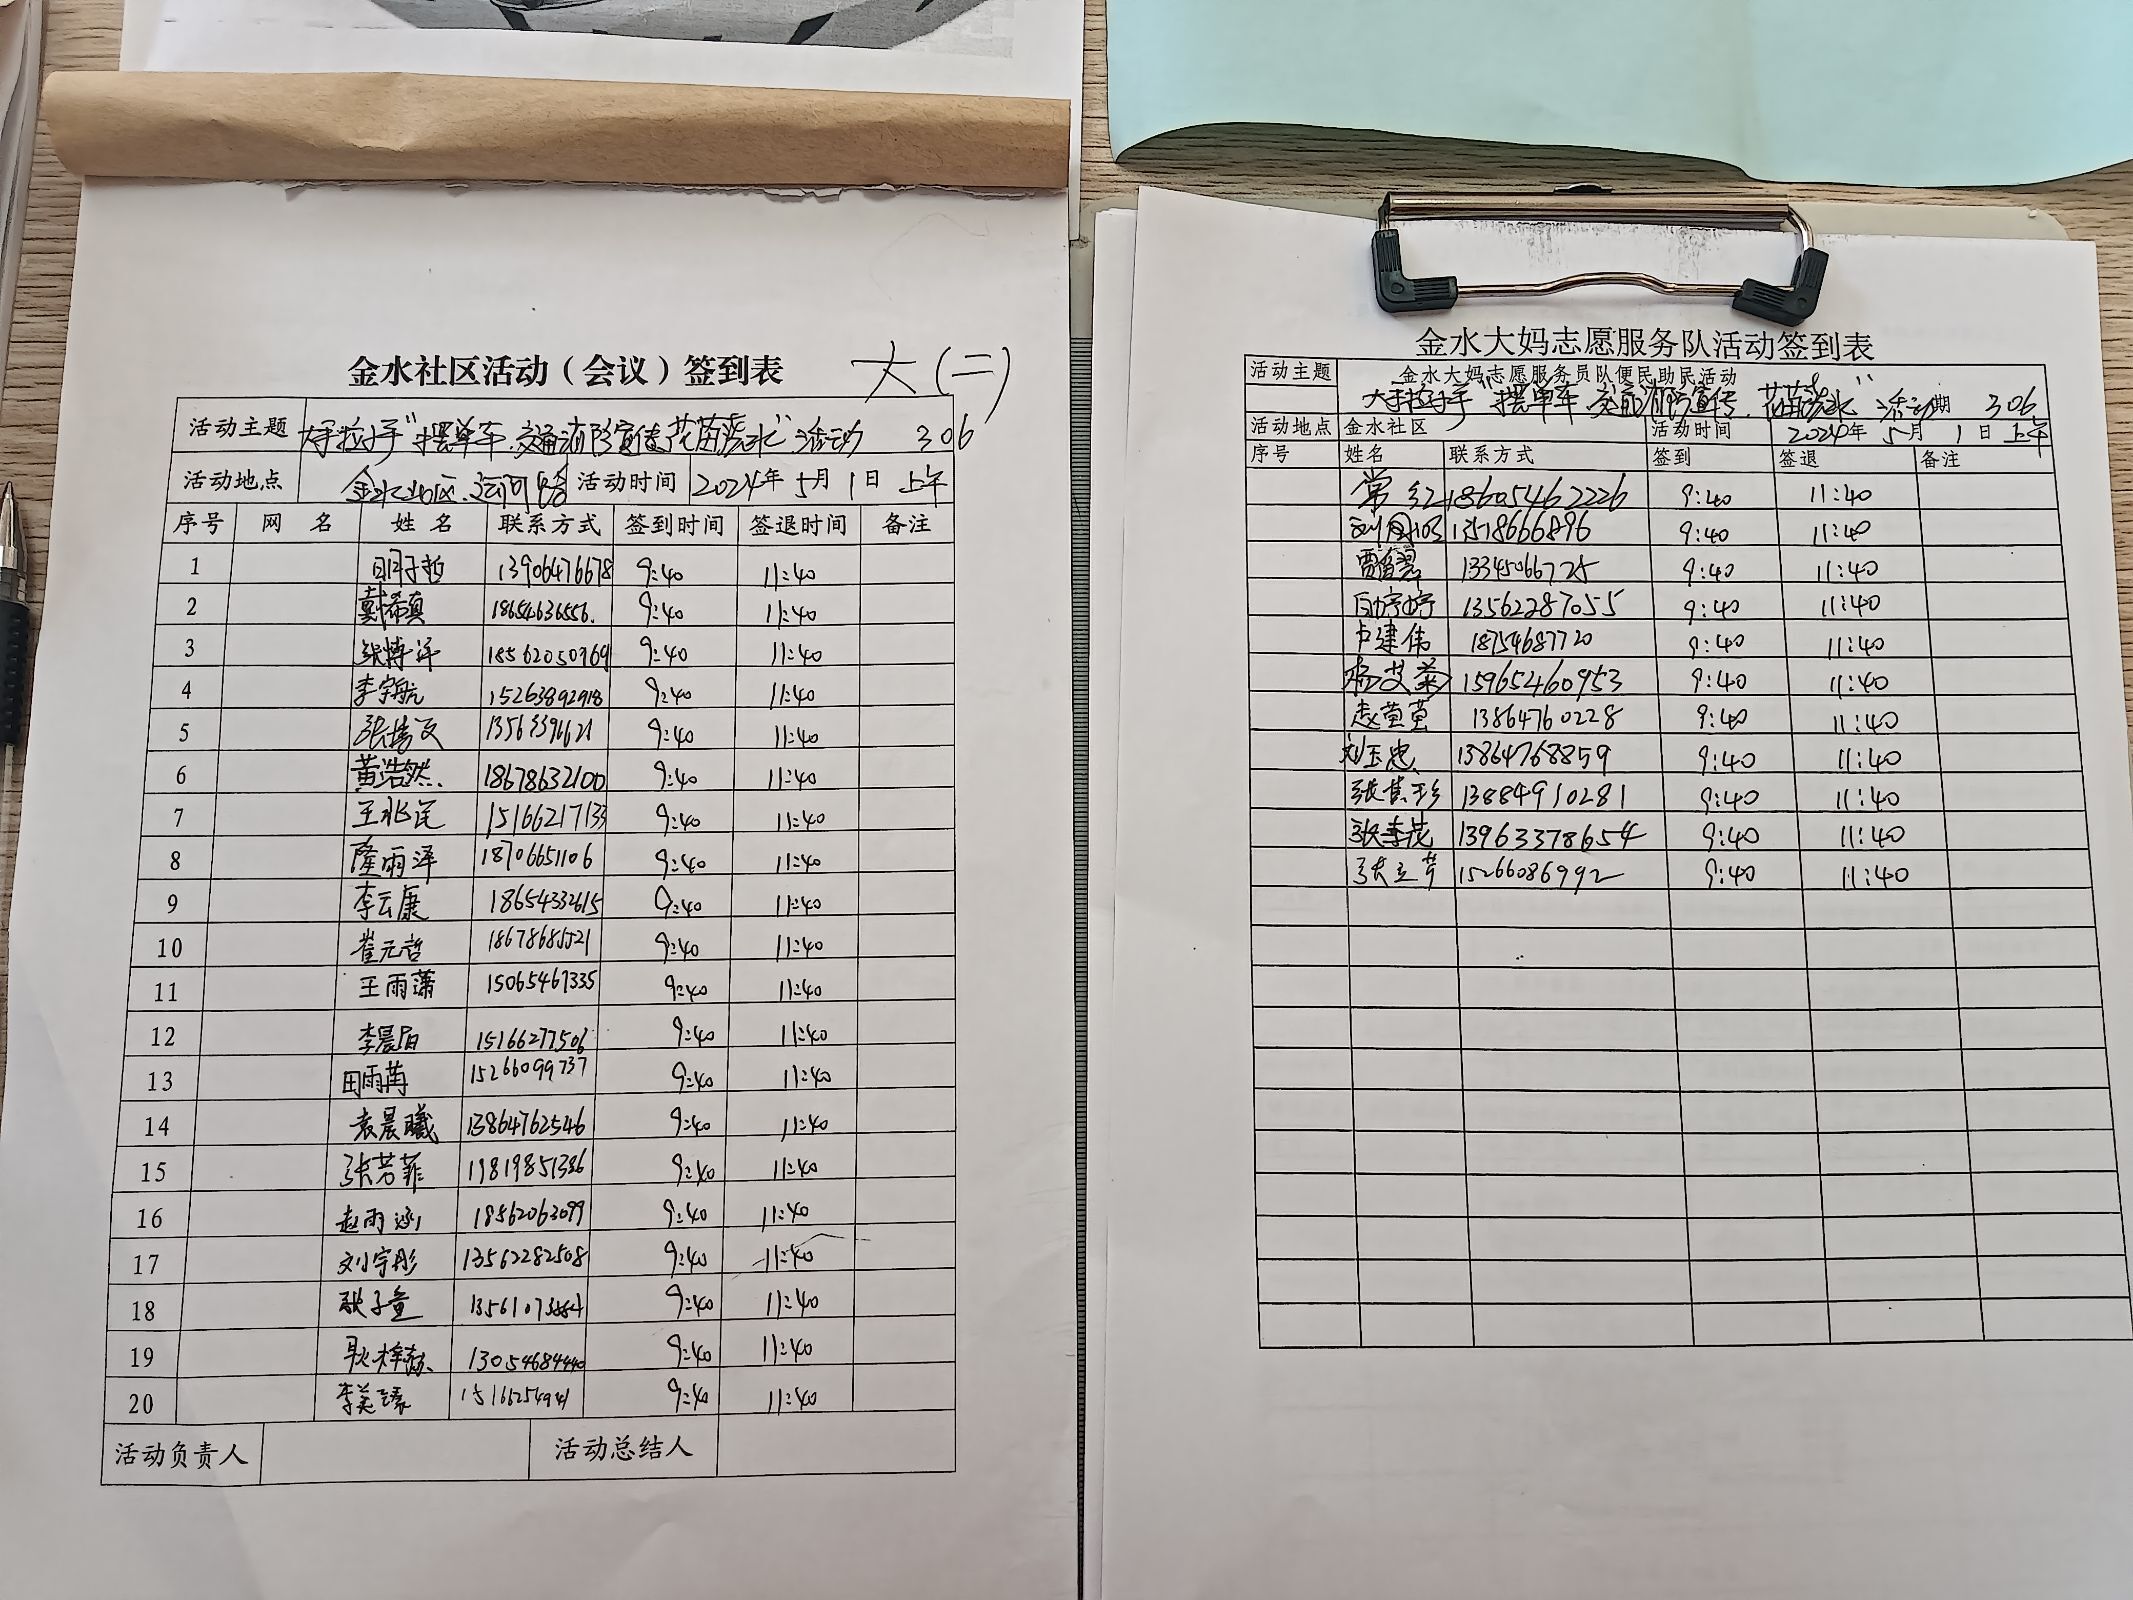 金水社区活动（会议）签到表 大(二)
活动主题 大手拉小手"摆单车.交通消防宣传花苗浇水"活动 306
活动地点 金水社区.运河路 活动时间 2024年5月1日 上午
序号 网名 姓名 联系方式 签到时间 签退时间 备注
1 13906476678 9:40 11:40
2 戴希真 18654636556. 9:40 11:40
3 张博洋 18562050969 9:40 11:40
4 李宇航 15263892918 9:40 11:40
5 9:40 11:40
6 黄浩然. 18678632100 9:40 11:40
7 王兆诺 15166217133 9:40 11:40
8 隆雨泽 18706651106 9:40 11:40
9 李云康 18654332615 9:40 11:40
10 崔元哲 18678685521 9:40 11:40
11 王雨潇 15065467335 9:40 11:40
12 15166277506 9:40 11:40
13 田雨苒 15266099737 9:40 11:40
14 袁晨曦 13864762546 9:40 11:40
15 张芳菲 19819851386 9:40 11:40
16 赵雨涵 18562063099 9:40 11:40
17 刘宇彤 13562282508 9:40 11:40
18 张子童 9:40 11:40
19 耿梓赫 13054684440 9:40 11:40
20 李美臻 9:40 11:40
活动负责人 活动总结人
金水大妈志愿服务队活动签到表
活动主题 金水大妈志愿服务员队便民助民活动
大手拉小手"摆单车.交通消防宣传.花苗浇水"活动期 306
活动地点 金水社区 活动时间 2024年5月1日 上午
序号 姓名 联系方式 签到 签退 备注
常红 18605462226 9:40 11:40
13518666896 9:40 11:40
13345066725 9:40 11:40
白婷婷 13562287055 9:40 11:40
卢建伟 18754687720 9:40 11:40
杨艾菊 15965460953 9:40 11:40
赵萱萱 13864760228 9:40 11:40
刘玉忠 13864768859 9:40 11:40
13884910281 9:40 11:40
张孝茂 13963378654 9:40 11:40
张立芹 15266086992 9:40 11:40